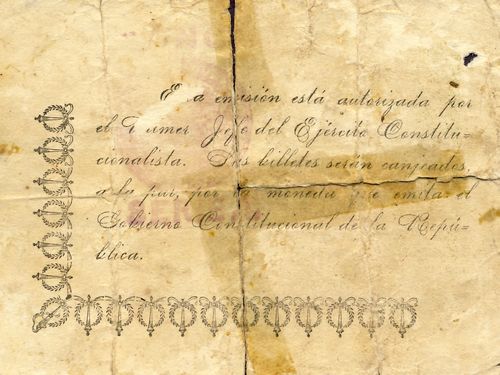 Esta emisión está autorizada por
el Primer Jefe del Ejército Constitu-
cionalista. Los billetes serán canjeados,
a la par, por la moneda que emita el
Gobierno Constitucional de la Repú-
blica.